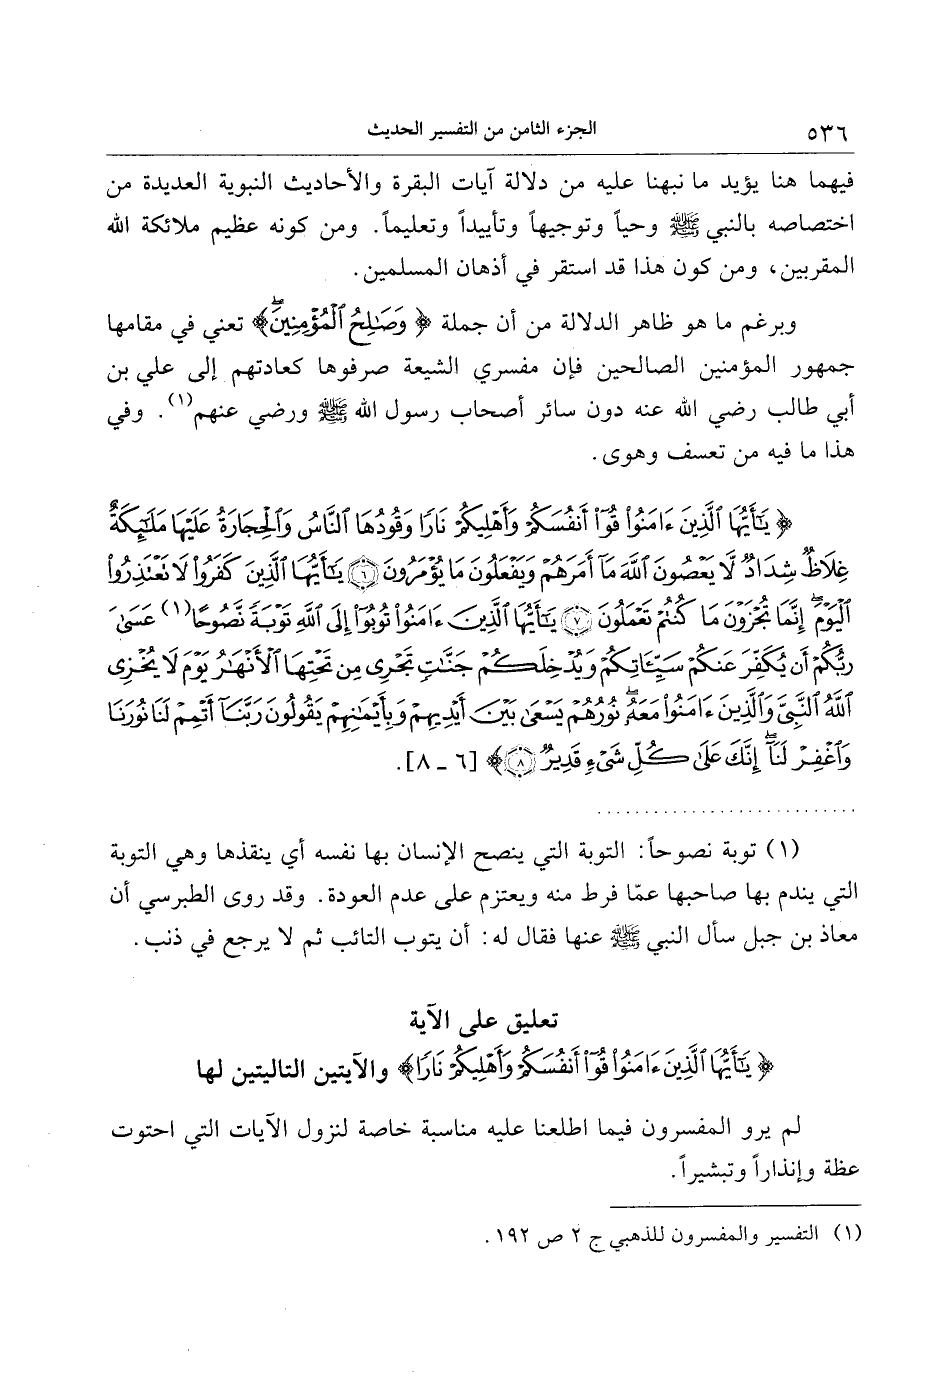 ٥٣٦ الجزء الثامن من التفسير الحديث
فيهما هنا يؤيد ما نبهنا عليه من دلالة آيات البقرة والأحاديث النبوية العديدة من
اختصاصه بالنبي ﷺ وحياً وتوجيهاً وتأييداً وتعليماً. ومن كونه عظيم ملائكة الله
المقربين، ومن كون هذا قد استقر في أذهان المسلمين.
وبرغم ما هو ظاهر الدلالة من أن جملة ﴿ وَصَٰلِحُ ٱلْمُؤْمِنِينَۖ﴾ تعني في مقامها
جمهور المؤمنين الصالحين فإن مفسري الشيعة صرفوها كعادتهم إلى علي بن
أبي طالب رضي الله عنه دون سائر أصحاب رسول الله ﷺ ورضي عنهم(١). وفي
هذا ما فيه من تعسف وهوى.
﴿ يَٰٓأَيُّهَا ٱلَّذِينَ ءَامَنُوا۟ قُوٓا۟ أَنفُسَكُمْ وَأَهْلِيكُمْ نَارًا وَقُودُهَا ٱلنَّاسُ وَٱلْحِجَارَةُ عَلَيْهَا مَلَٰٓئِكَةٌ
غِلَاظٌ شِدَادٌ لَّا يَعْصُونَ ٱللَّهَ مَآ أَمَرَهُمْ وَيَفْعَلُونَ مَا يُؤْمَرُونَ ٦ يَٰٓأَيُّهَا ٱلَّذِينَ كَفَرُوا۟ لَا تَعْتَذِرُوا۟
ٱلْيَوْمَۖ إِنَّمَا تُجْزَوْنَ مَا كُنتُمْ تَعْمَلُونَ ٧ يَٰٓأَيُّهَا ٱلَّذِينَ ءَامَنُوا۟ تُوبُوٓا۟ إِلَى ٱللَّهِ تَوْبَةً نَّصُوحًا (١) عَسَىٰ
رَبُّكُمْ أَن يُكَفِّرَ عَنكُمْ سَيِّـَٔاتِكُمْ وَيُدْخِلَكُمْ جَنَّٰتٍ تَجْرِى مِن تَحْتِهَا ٱلْأَنْهَٰرُ يَوْمَ لَا يُخْزِى
ٱللَّهُ ٱلنَّبِىَّ وَٱلَّذِينَ ءَامَنُوا۟ مَعَهُۥۖ نُورُهُمْ يَسْعَىٰ بَيْنَ أَيْدِيهِمْ وَبِأَيْمَٰنِهِمْ يَقُولُونَ رَبَّنَآ أَتْمِمْ لَنَا نُورَنَا
وَٱغْفِرْ لَنَآۖ إِنَّكَ عَلَىٰ كُلِّ شَىْءٍ قَدِيرٌ ٨﴾ [٦ ـ ٨].
(١) توبة نصوحاً: التوبة التي ينصح الإنسان بها نفسه أي ينقذها وهي التوبة
التي يندم بها صاحبها عمّا فرط منه ويعتزم على عدم العودة. وقد روى الطبرسي أن
معاذ بن جبل سأل النبي ﷺ عنها فقال له: أن يتوب التائب ثم لا يرجع في ذنب.
تعليق على الآية
﴿ يَٰٓأَيُّهَا ٱلَّذِينَ ءَامَنُوا۟ قُوٓا۟ أَنفُسَكُمْ وَأَهْلِيكُمْ نَارًا﴾ والآيتين التاليتين لها
لم يرو المفسرون فيما اطلعنا عليه مناسبة خاصة لنزول الآيات التي احتوت
عظة وإنذاراً وتبشيراً.
(١) التفسير والمفسرون للذهبي ج ٢ ص ١٩٢.